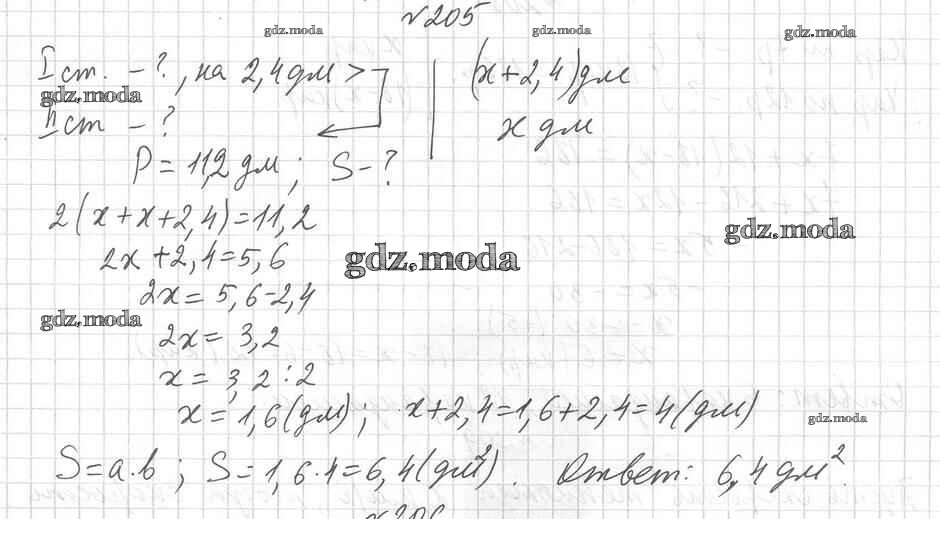 №205
gdz.moda gdz.moda gdz.moda
I ст. – ?, на 2,4 дм > (x+2,4) дм
gdz.moda
II ст – ? x дм
P = 11,2 дм; S – ?
2(x+x+2,4)=11,2
gdz.moda
2x+2,4=5,6
gdz.moda
2x=5,6-2,4
gdz.moda
2x=3,2
x=3,2:2
x=1,6(дм); x+2,4=1,6+2,4=4(дм)
gdz.moda
S=a·b; S=1,6·4=6,4(дм²). Ответ: 6,4 дм².